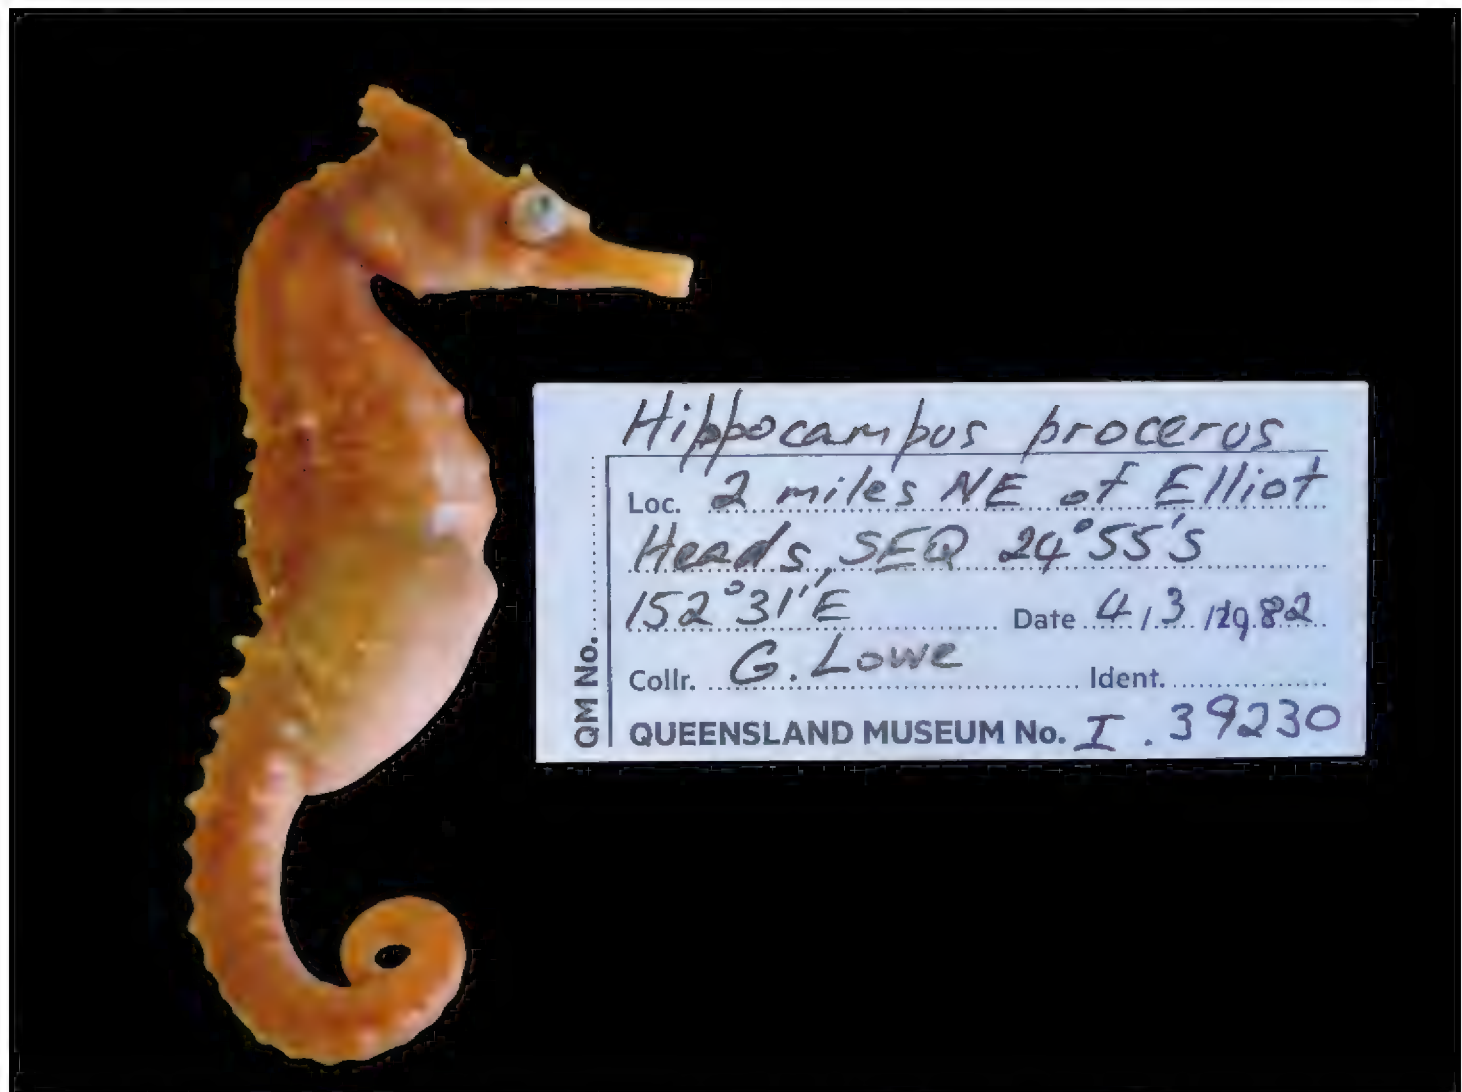 Hippocampus procerus
Loc. 2 miles NE of Elliot
Heads, SEQ 24°55'S
152°31'E Date 4/3/1982
Collr. G. Lowe Ident.
QUEENSLAND MUSEUM No. I.39230
QM No.